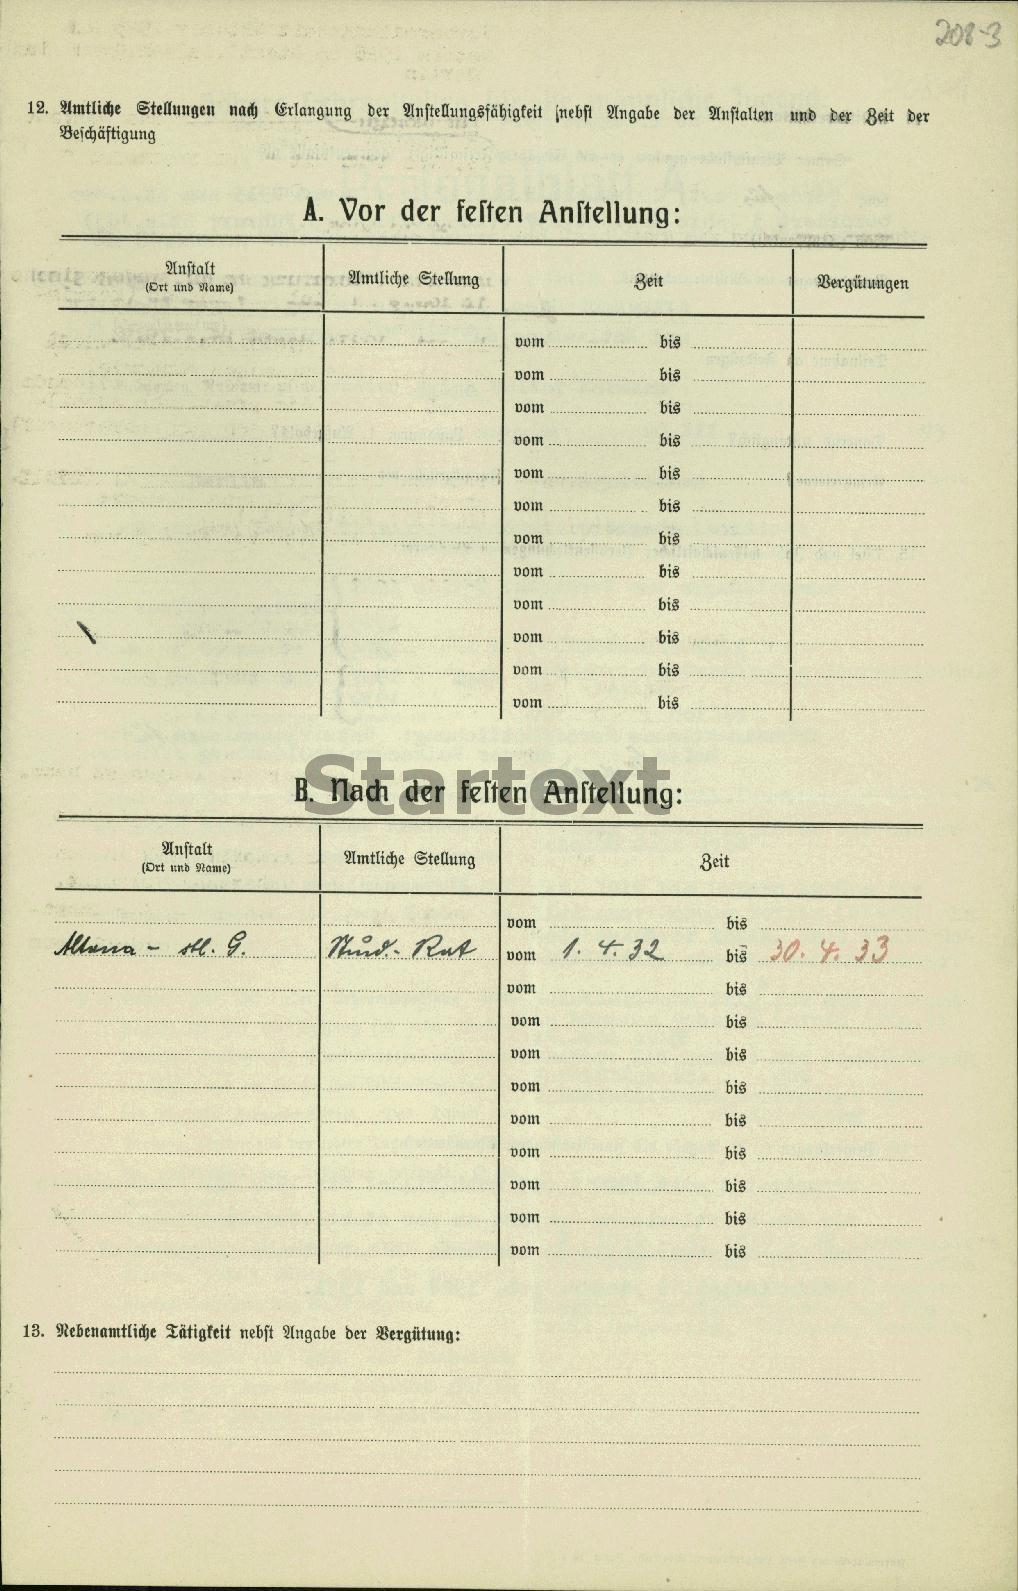 208-3
12. Amtliche Stellungen nach Erlangung der Anstellungsfähigkeit (nebst Angabe der Anstalten und der Zeit der
Beschäftigung
A. Vor der festen Anstellung:
Anstalt Amtliche Stellung Zeit Vergütungen
(Ort und Name)
vom bis
vom bis
vom bis
vom bis
vom bis
vom bis
vom bis
vom bis
vom bis
vom bis
vom bis
vom bis
Startext
B. Nach der festen Anstellung:
Anstalt Amtliche Stellung Zeit
(Ort und Name)
vom bis
Altona - stl. G. Stud.-Rat vom 1. 4. 32 bis 30. 4. 33
vom bis
vom bis
vom bis
vom bis
vom bis
vom bis
vom bis
vom bis
vom bis
13. Nebenamtliche Tätigkeit nebst Angabe der Vergütung: